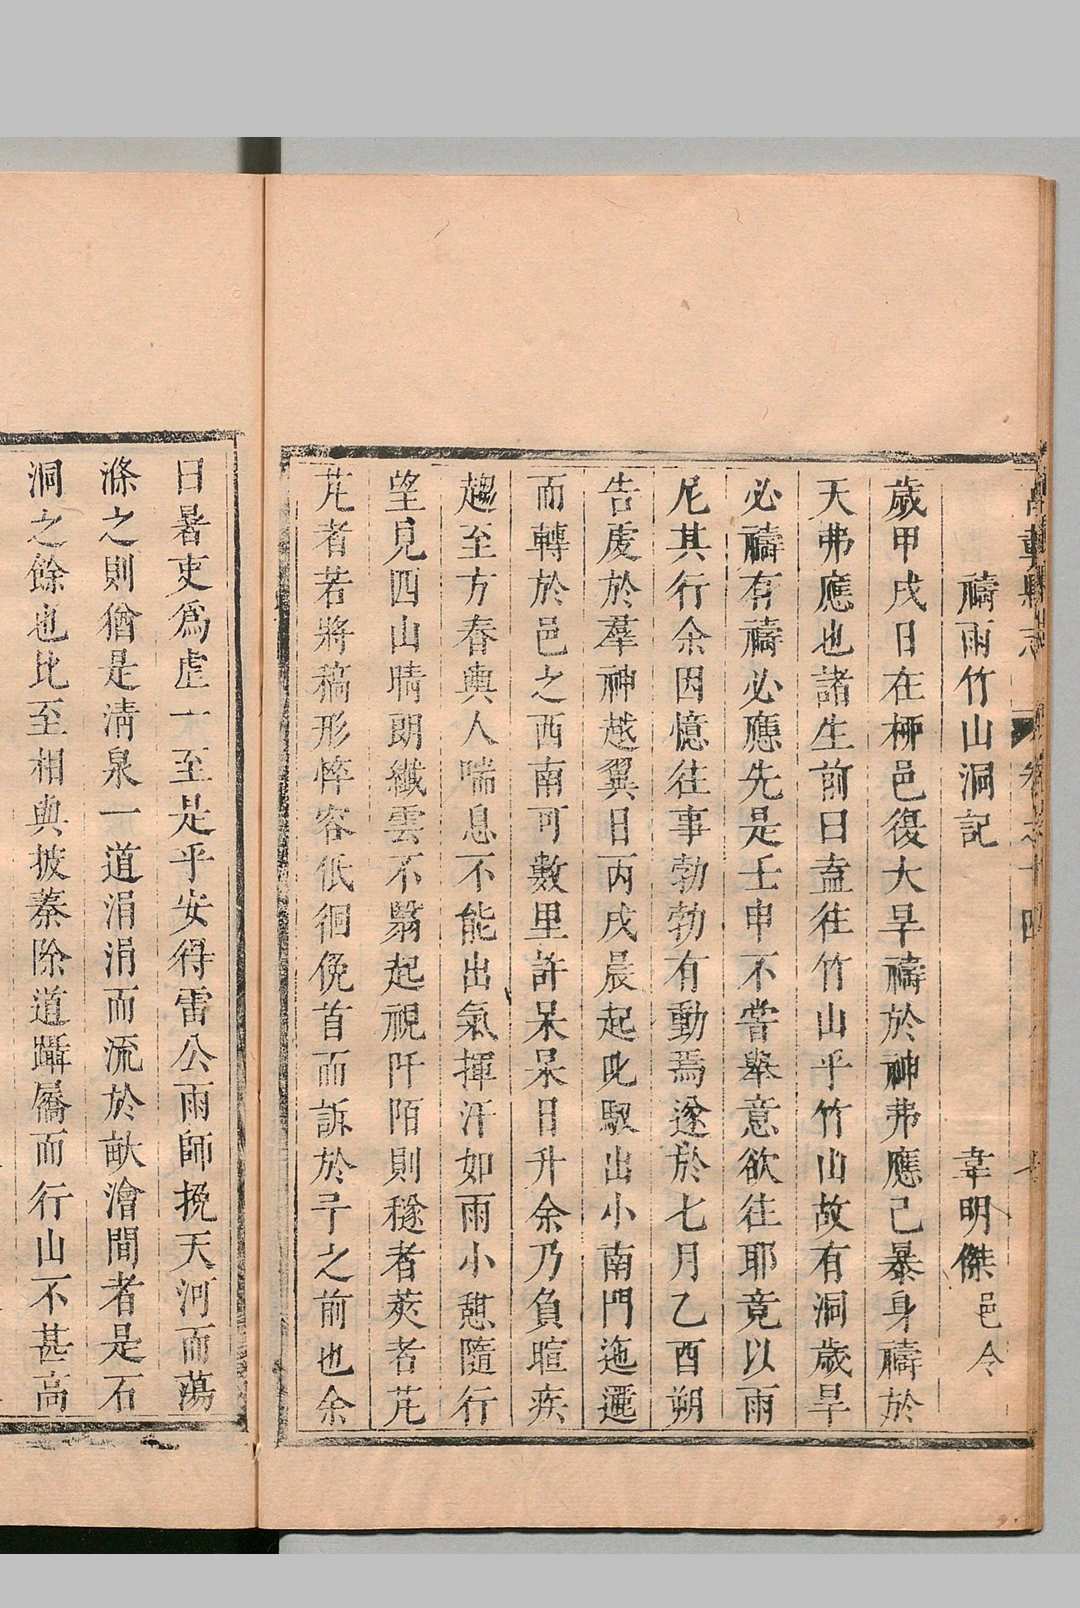 縣志 卷之十四
禱雨竹山洞記 韋明傑邑令
歲甲戌日在柳邑復大旱禱於神弗應己暴身禱於
天弗應也諸生前曰盍往竹山乎竹山故有洞歲旱
必禱有禱必應先是壬申不嘗舉意欲往耶竟以雨
尼其行余因憶往事勃勃有動焉遂於七月乙酉朔
告虔於羣神越翼日丙戌晨起叱馭出小南門迤邐
而轉於邑之西南可數里許杲杲日升余乃負暄疾
趨至方春輿人喘息不能出氣揮汗如雨小憩隨行
望見四山晴朗纖雲不翳起視阡陌則穟者莢者芃
芃者若將稿形悴容低徊俛首而訴於予之前也余
日暑吏爲虐一至是乎安得雷公雨師挽天河而蕩
滌之則猶是清泉一道涓涓而流於畎澮間者是石
洞之餘也比至相與披蓁除道躡屩而行山不甚高